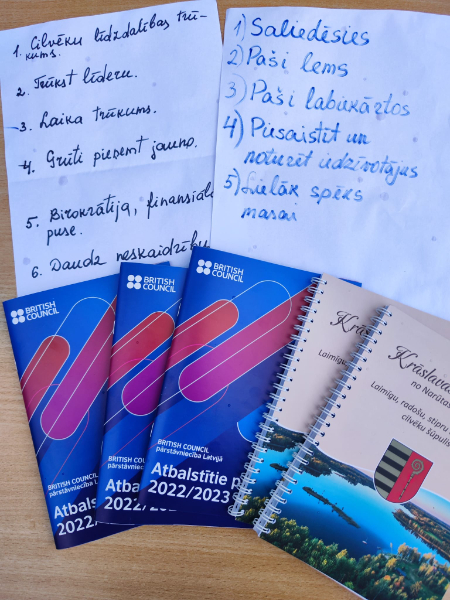 1. Cilvēku līdzdalības trū-
kums.
2. Trūkst līderu.
3. Laika trūkums.
4. Grūti pieņemt jauno.
5. Birokrātija, finansiālā
puse.
6. Daudz neskaidrību
1) Saliedēsies
2) Paši lems
3) Paši labiekārtos
4) Piesaistīt un
noturēt iedzīvotājus
5) Lielāks spēks
masai
BRITISH
COUNCIL
BRITISH COUNCIL
pārstāvniecība Latvijā
Atbalstītie
2022/
BRITISH
COUNCIL
BRITISH COUNCIL
pārstāvniecība
Atbalstītie
2022/20
BRITISH
COUNCIL
BRITISH COUNCIL
pārstāvniecība Latvijā
Atbalstītie p
2022/2023
Krāslava
no Narūtas
Laimīgu, radošu, stipru
cilvēku šūpulis
Laimīgu,